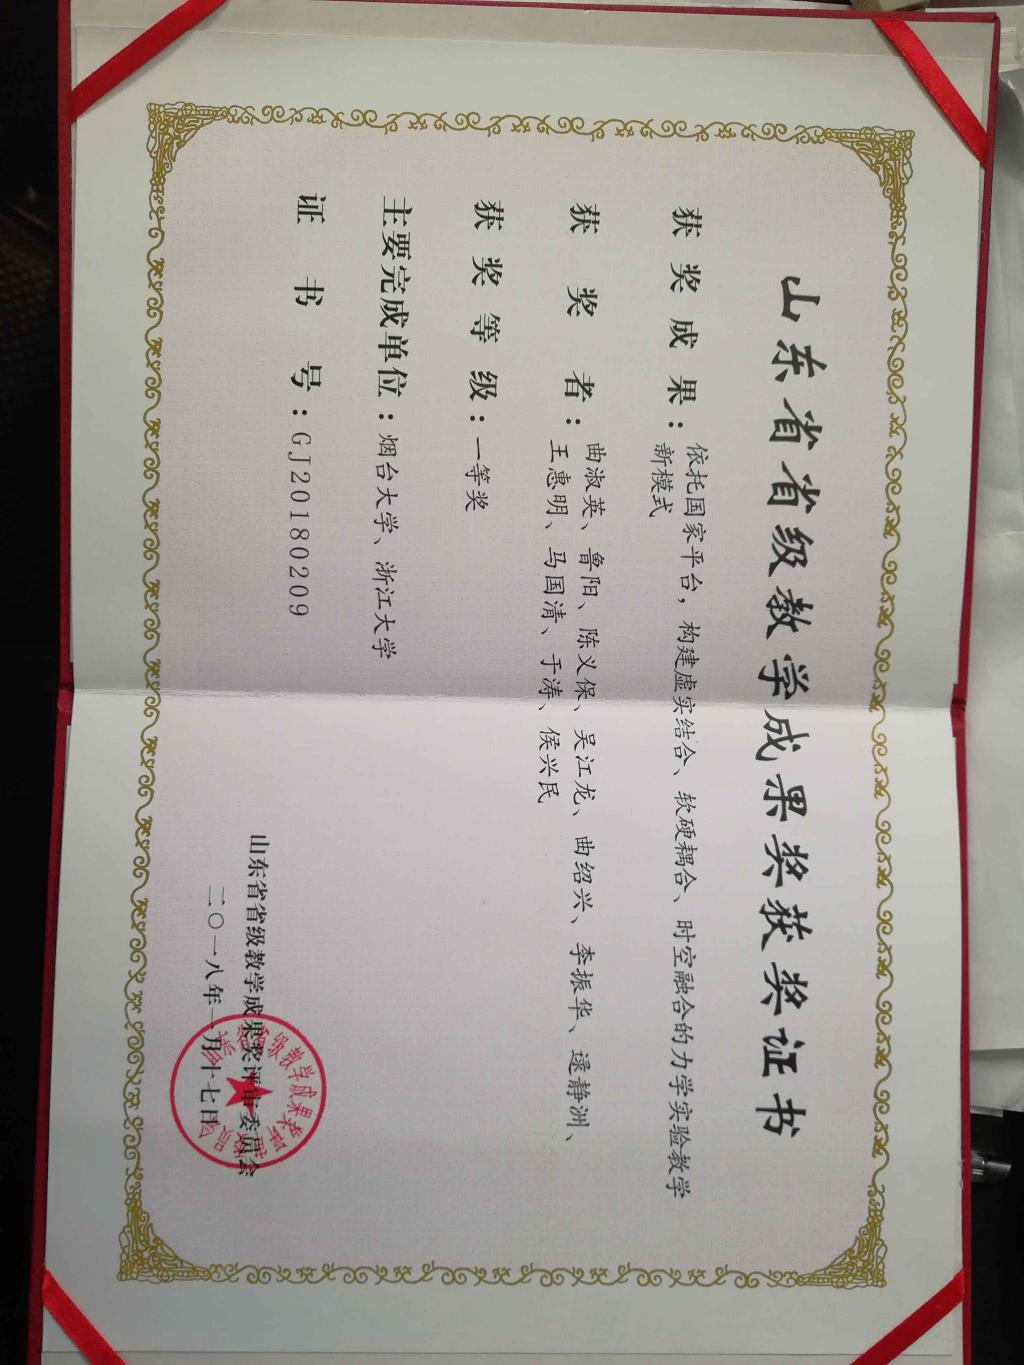 山东省省级教学成果奖获奖证书
获奖成果：依托国家平台，构建虚实结合、软硬耦合、时空融合的力学实验教学
新模式
获奖者：曲淑英、鲁阳、陈义保、吴江龙、曲绍兴、李振华、逯静洲、
王惠明、马国清、于涛、侯兴民
获奖等级：一等奖
主要完成单位：烟台大学、浙江大学
证书号：GJ20180209
山东省省级教学成果奖评审委员会
二〇一八年一月十七日